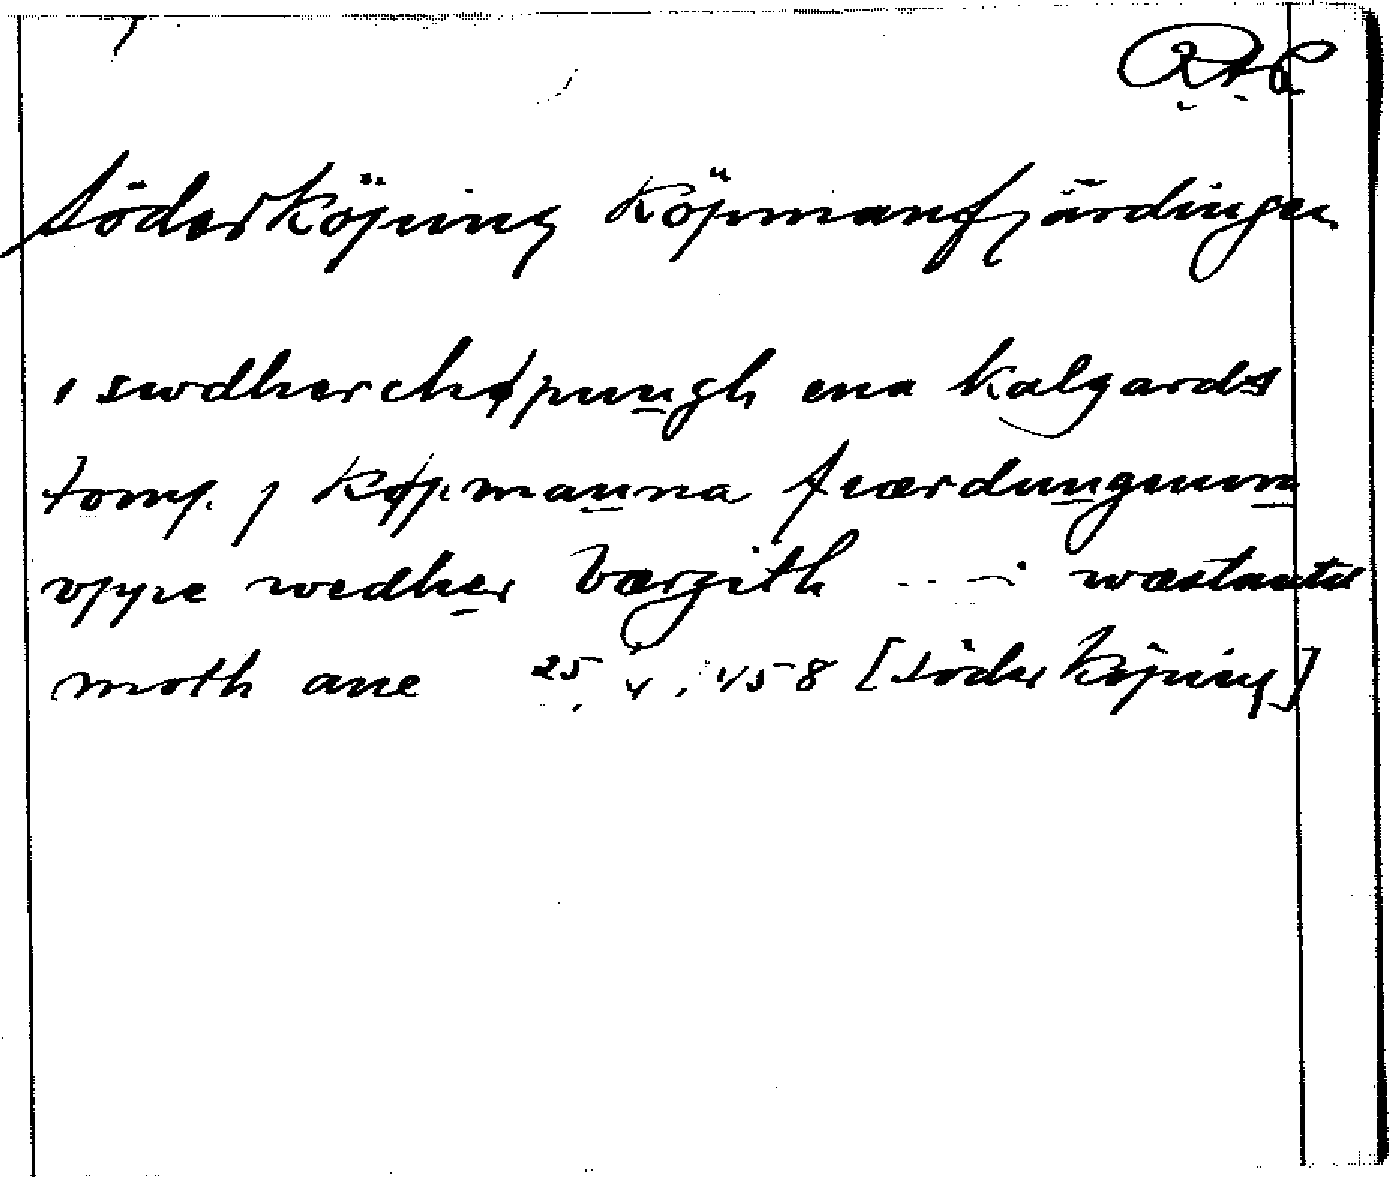 RAP
Söderköping Köpmanfjärdingen
i swdherchøpungh ena kalgards
tomp j køpmanna fiærdungenom
vppe wedher bærgith --- wæstantil
moth ane 25/4 1458 [Söderköping]